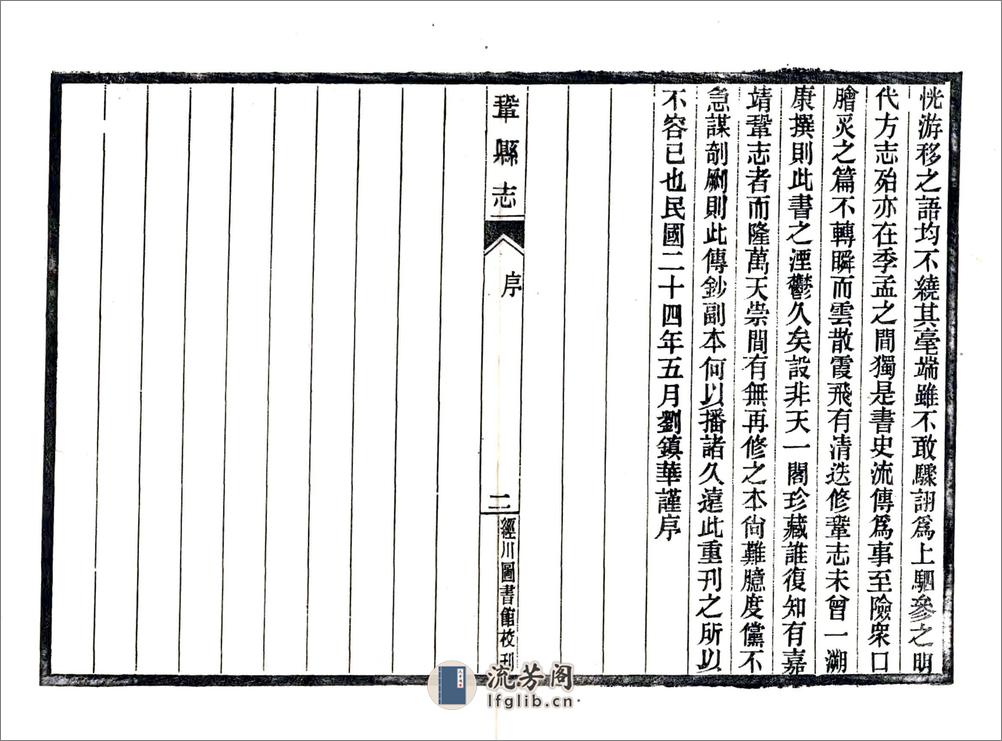 恍游移之語均不繞其毫端雖不敢驟詡爲上駟參之明
代方志殆亦在季孟之間獨是書史流傳爲事至險衆口
膾炙之篇不轉瞬而雲散霞飛有清迭修鞏志未曾一溯
康撰則此書之湮鬱久矣設非天一閣珍藏誰復知有嘉
靖鞏志者而隆萬天崇間有無再修之本尙難臆度儻不
急謀剞劂則此傳鈔副本何以播諸久遠此重刊之所以
不容已也民國二十四年五月劉鎮華謹序
鞏縣志
序
二
經川圖書館校刊
流芳阁
lfglib.cn